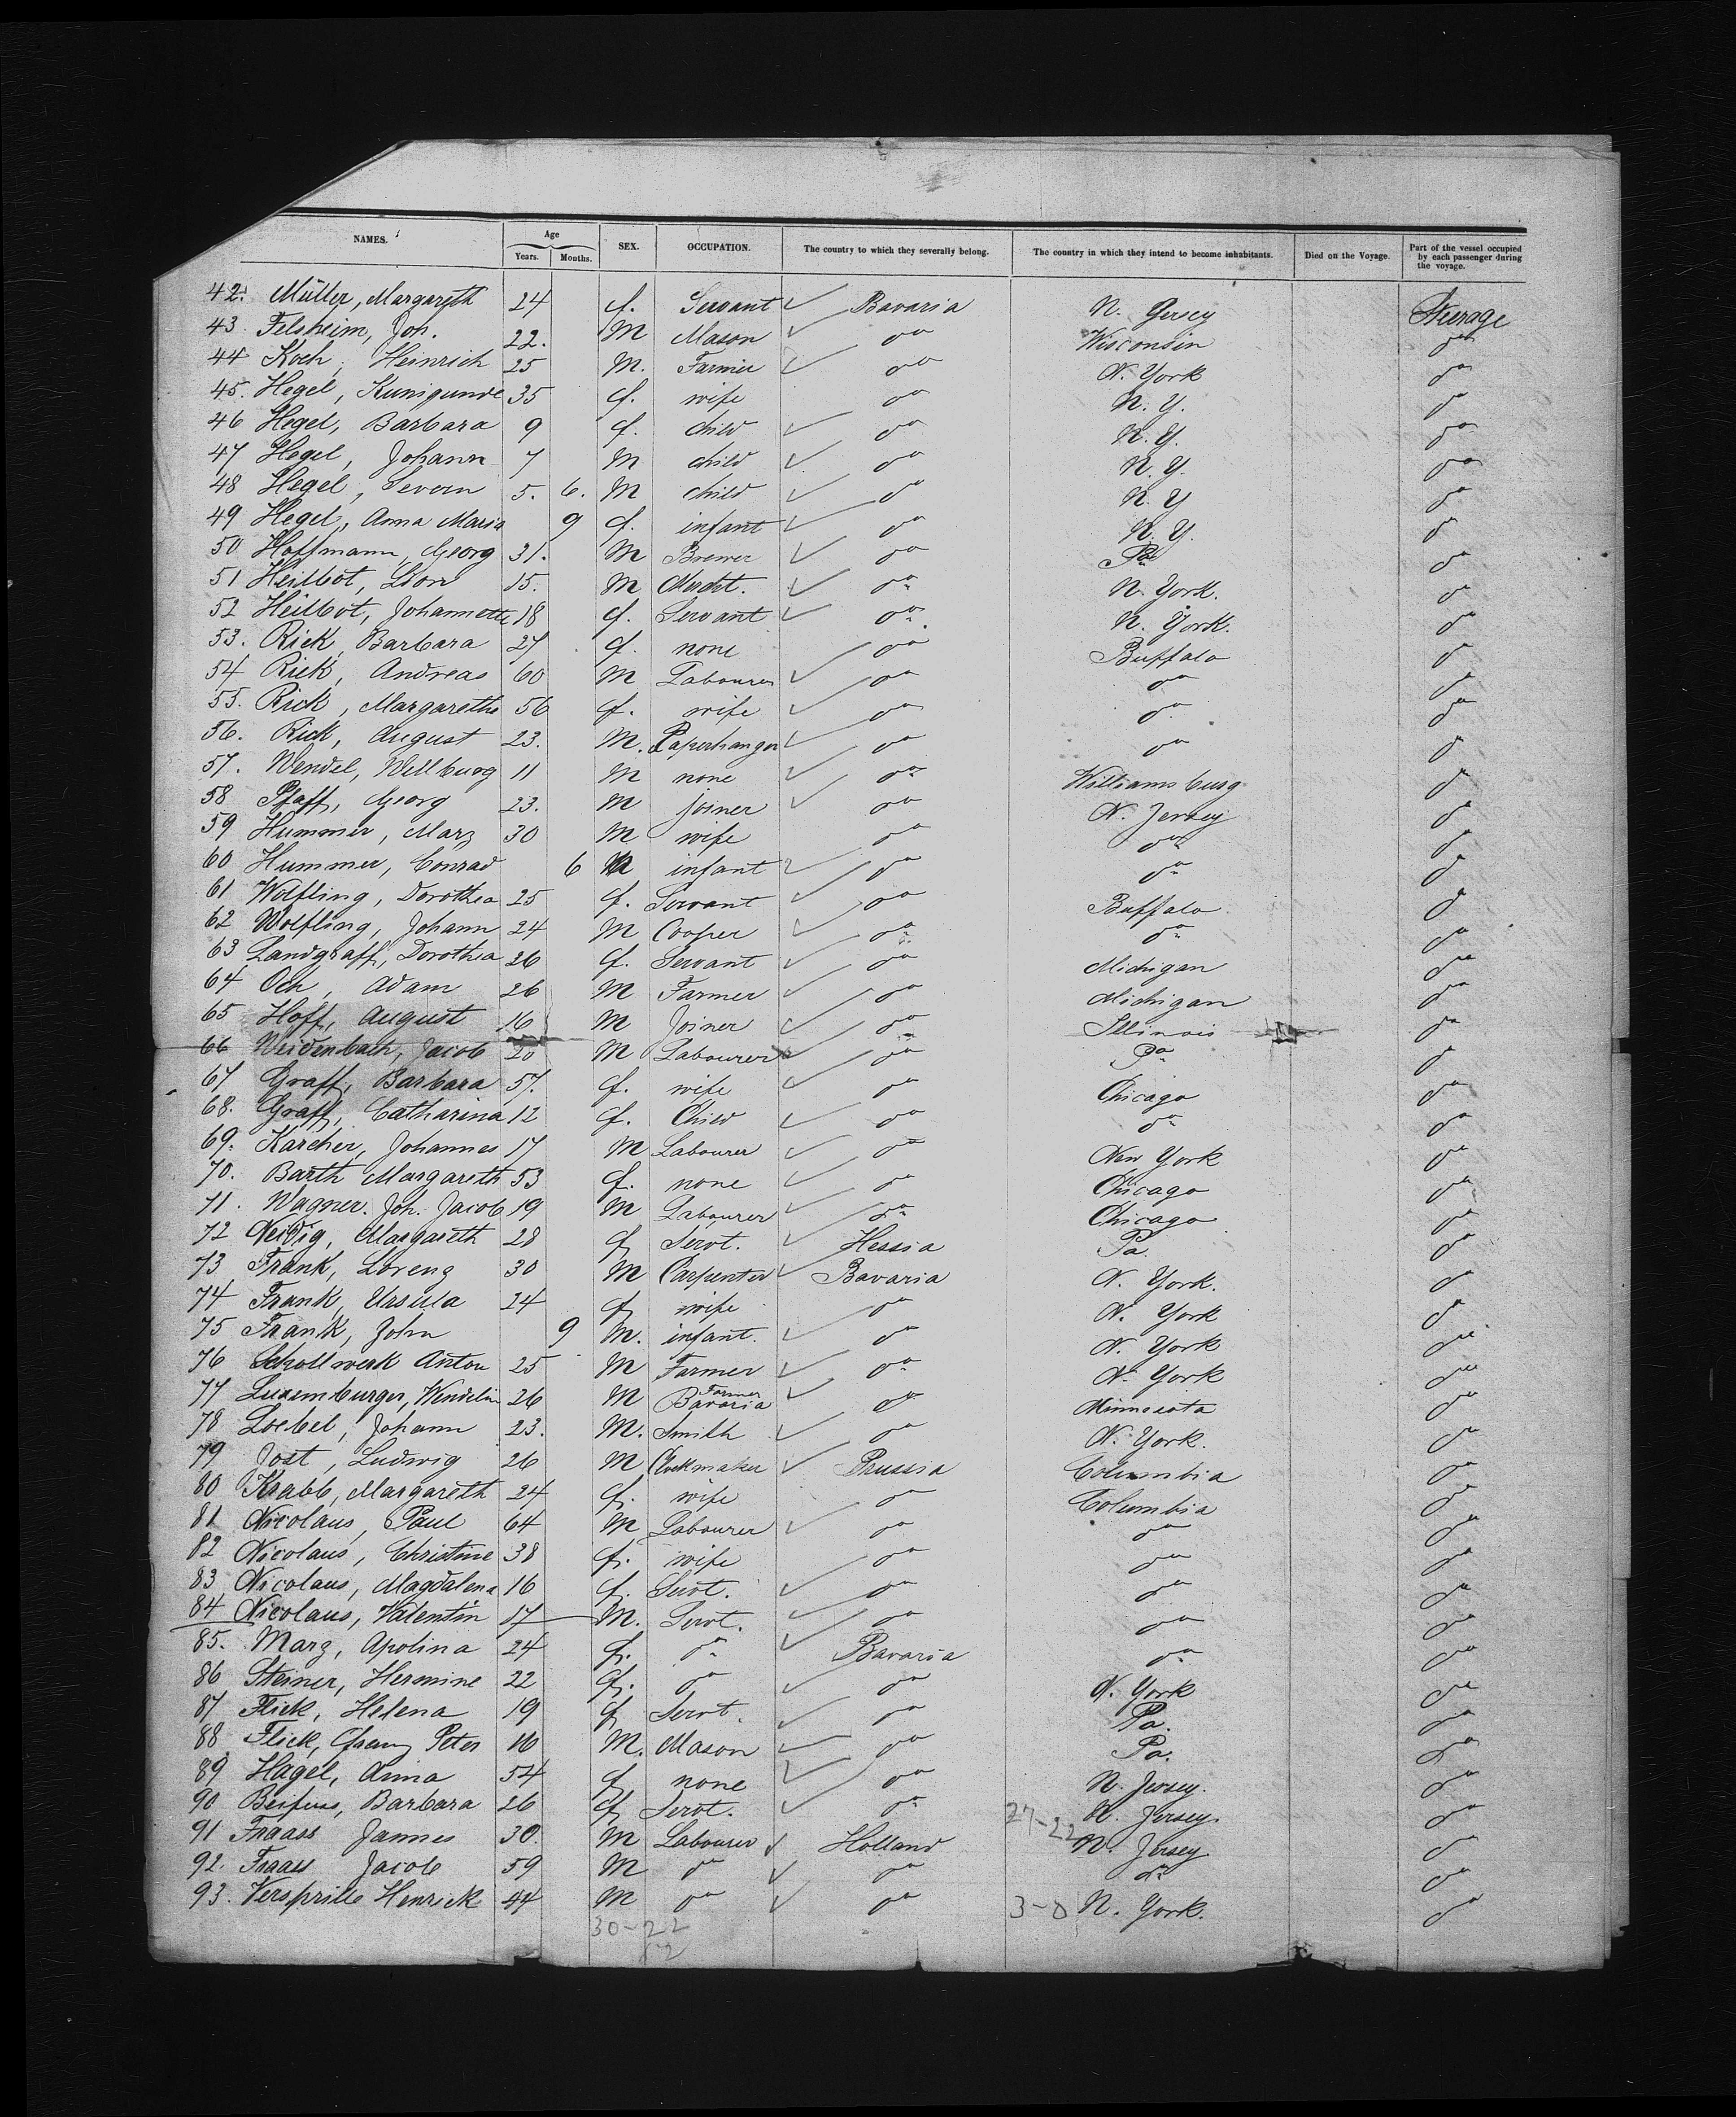 NAMES. Age Years. Months. SEX. OCCUPATION. The country to which they severally belong. The country in which they intend to become inhabitants. Died on the Voyage. Part of the vessel occupied by each passenger during the voyage.
42. Müller, Margareth 24 f. Servant Bavaria N. Jersey Steerage
43. Felsheim, Joh. 22. M Mason do Wisconsin do
44 Koch, Heinrich 25 M. Farmer do N. York do
45. Hegel, Kunigunde 35 f. wife do N. Y. do
46 Hegel, Barbara 9 f. child do N. Y. do
47 Hegel, Johann 7 M child do N. Y. do
48 Hegel, Severn 5. 6. M child do N. Y do
49 Hegel, Anna Maria 9 f. infant do N. Y. do
50 Hoffmann, Georg 31. M Brewer do Pa do
51 Heilbot, Leon 15. M Mercht. do N. York. do
52 Heilbot, Johannette 18 f. Servant do. N. York. do
53. Rick, Barbara 27 f. none do Buffalo do
54 Rick, Andreas 60 M Labourer do do do
55. Rick, Margarethe 56 f. wife do do do
56. Rick, August 23. M. Paperhanger do do do
57. Wendel, Willburg 11 M none do Williamsburg do
58 Pfaff, Georg 23. M joiner do N. Jersey do
59 Hummer, Marg 30 M wife do do do
60 Hummer, Conrad 6 M infant do do do
61 Wolfling, Dorothea 25 f. Servant do Buffalo do
62 Wolfling, Johann 24 M Cooper do do do
63 Landgraff, Dorothea 26 f. Servant do Michigan do
64 Och, Adam 26 M Farmer do Michigan do
65 Hoff, August 16 M Joiner do Illinois do
66 Weidenbach, Jacob 20 M Labourer do Pa do
67 Graff, Barbara 57. f. wife do Chicago do
68. Graff, Catharina 12 f. Child do do do
69. Karcher, Johannes 17 M Labourer do New York do
70. Barth Margareth 53 f. none do Chicago do
71. Wagner. Joh. Jacob 19 M Labourer do Chicago do
72 Neidig, Margareth 28 f Servt. Hessia Pa. do
73 Frank, Lorenz 30 M Carpenter Bavaria N. York. do
74 Frank, Ursula 24 f wife do N. York do
75 Frank, John 9 M. infant. do N. York do
76 Schollwerk Anton 25 M Farmer do N. York do
77 Luxemburger, Wendelin 26 M Farmer Bavaria do Minnesota do
78 Loebel, Johann 23. M. Smith do N. York. do
79 Jost, Ludwig 26 M Clockmaker Prussia Columbia do
80 Krabb, Margareth 24 f. wife do Columbia do
81 Nicolaus, Paul 64 M Labourer do do do
82 Nicolaus, Christine 38 f. wife do do do
83 Nicolaus, Magdalena 16 f. Servt. do do do
84 Nicolaus, Valentin 17 M. Servt. do do do
85. Marz, Apolina 24 f. do Bavaria do do
86 Steiner, Hermine 22 f. do do N. York do
87 Flick, Helena 19 f Servt. do Pa. do
88 Flick, Franz Peter 16 M. Mason do Pa. do
89 Hagel, Anna 54 f none do N. Jersey. do
90 Barbara 26 f Servt. do N. Jersey. do
91 Fraass Jannes 30. M Labourer Holland 27-22 N. Jersey do
92. Fraass Jacob 59 M do do do do
93. Versprille Henrick 44 M do do 3-0 N. York. do
30-22
52